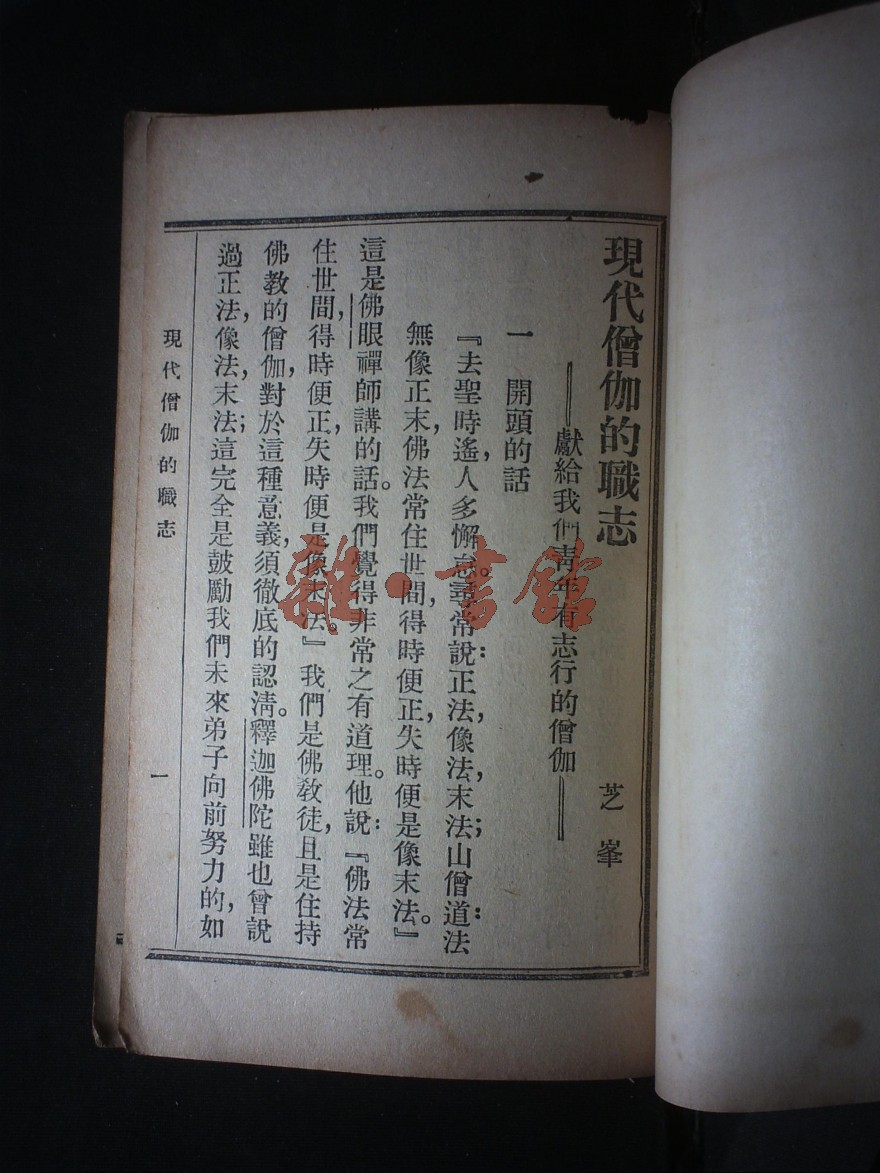 現代僧伽的職志
芝峯
——獻給我們靑年有志行的僧伽——
一　開頭的話
『去聖時遙，人多懈怠。尋常說：正法，像法，末法；山僧道：法
無像正末，佛法常住世間，得時便正，失時便是像末法。』
這是佛眼禪師講的話。我們覺得非常之有道理。他說：『佛法常
住世間，得時便正，失時便是像末法。』我們是佛敎徒，且是住持
佛敎的僧伽，對於這種意義，須徹底的認淸。釋迦佛陀雖也曾說
過正法，像法，末法；這完全是鼓勵我們未來弟子向前努力的，如
現代僧伽的職志
一
雜·書館